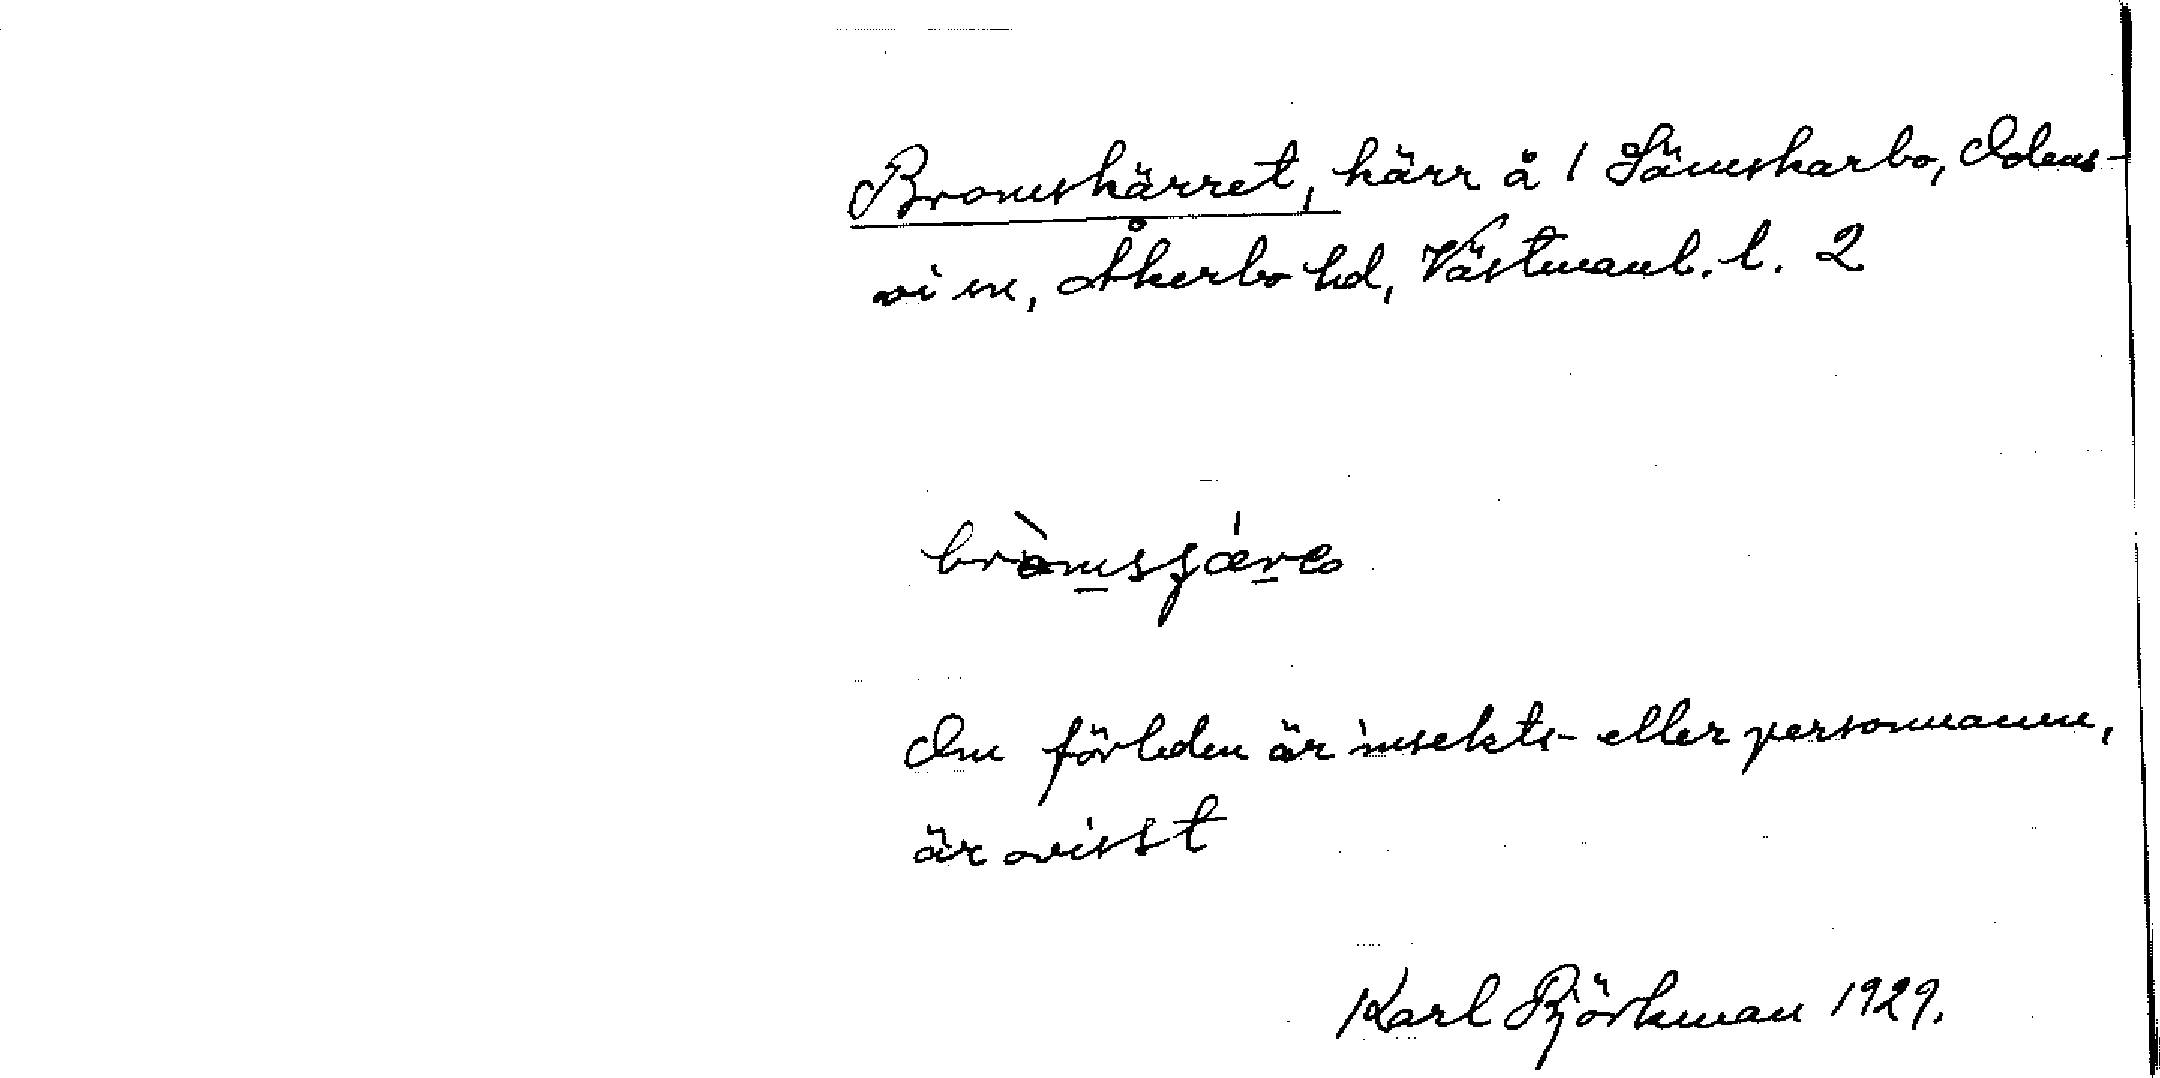 Bromskärret, kärr å 1 Sömskarbo, Odens-
vi sn, Åkerbo hd, Västmanl. l. 2
Om förleden är insekts- eller personnamn,
är ovisst
Karl Björkman 1929.